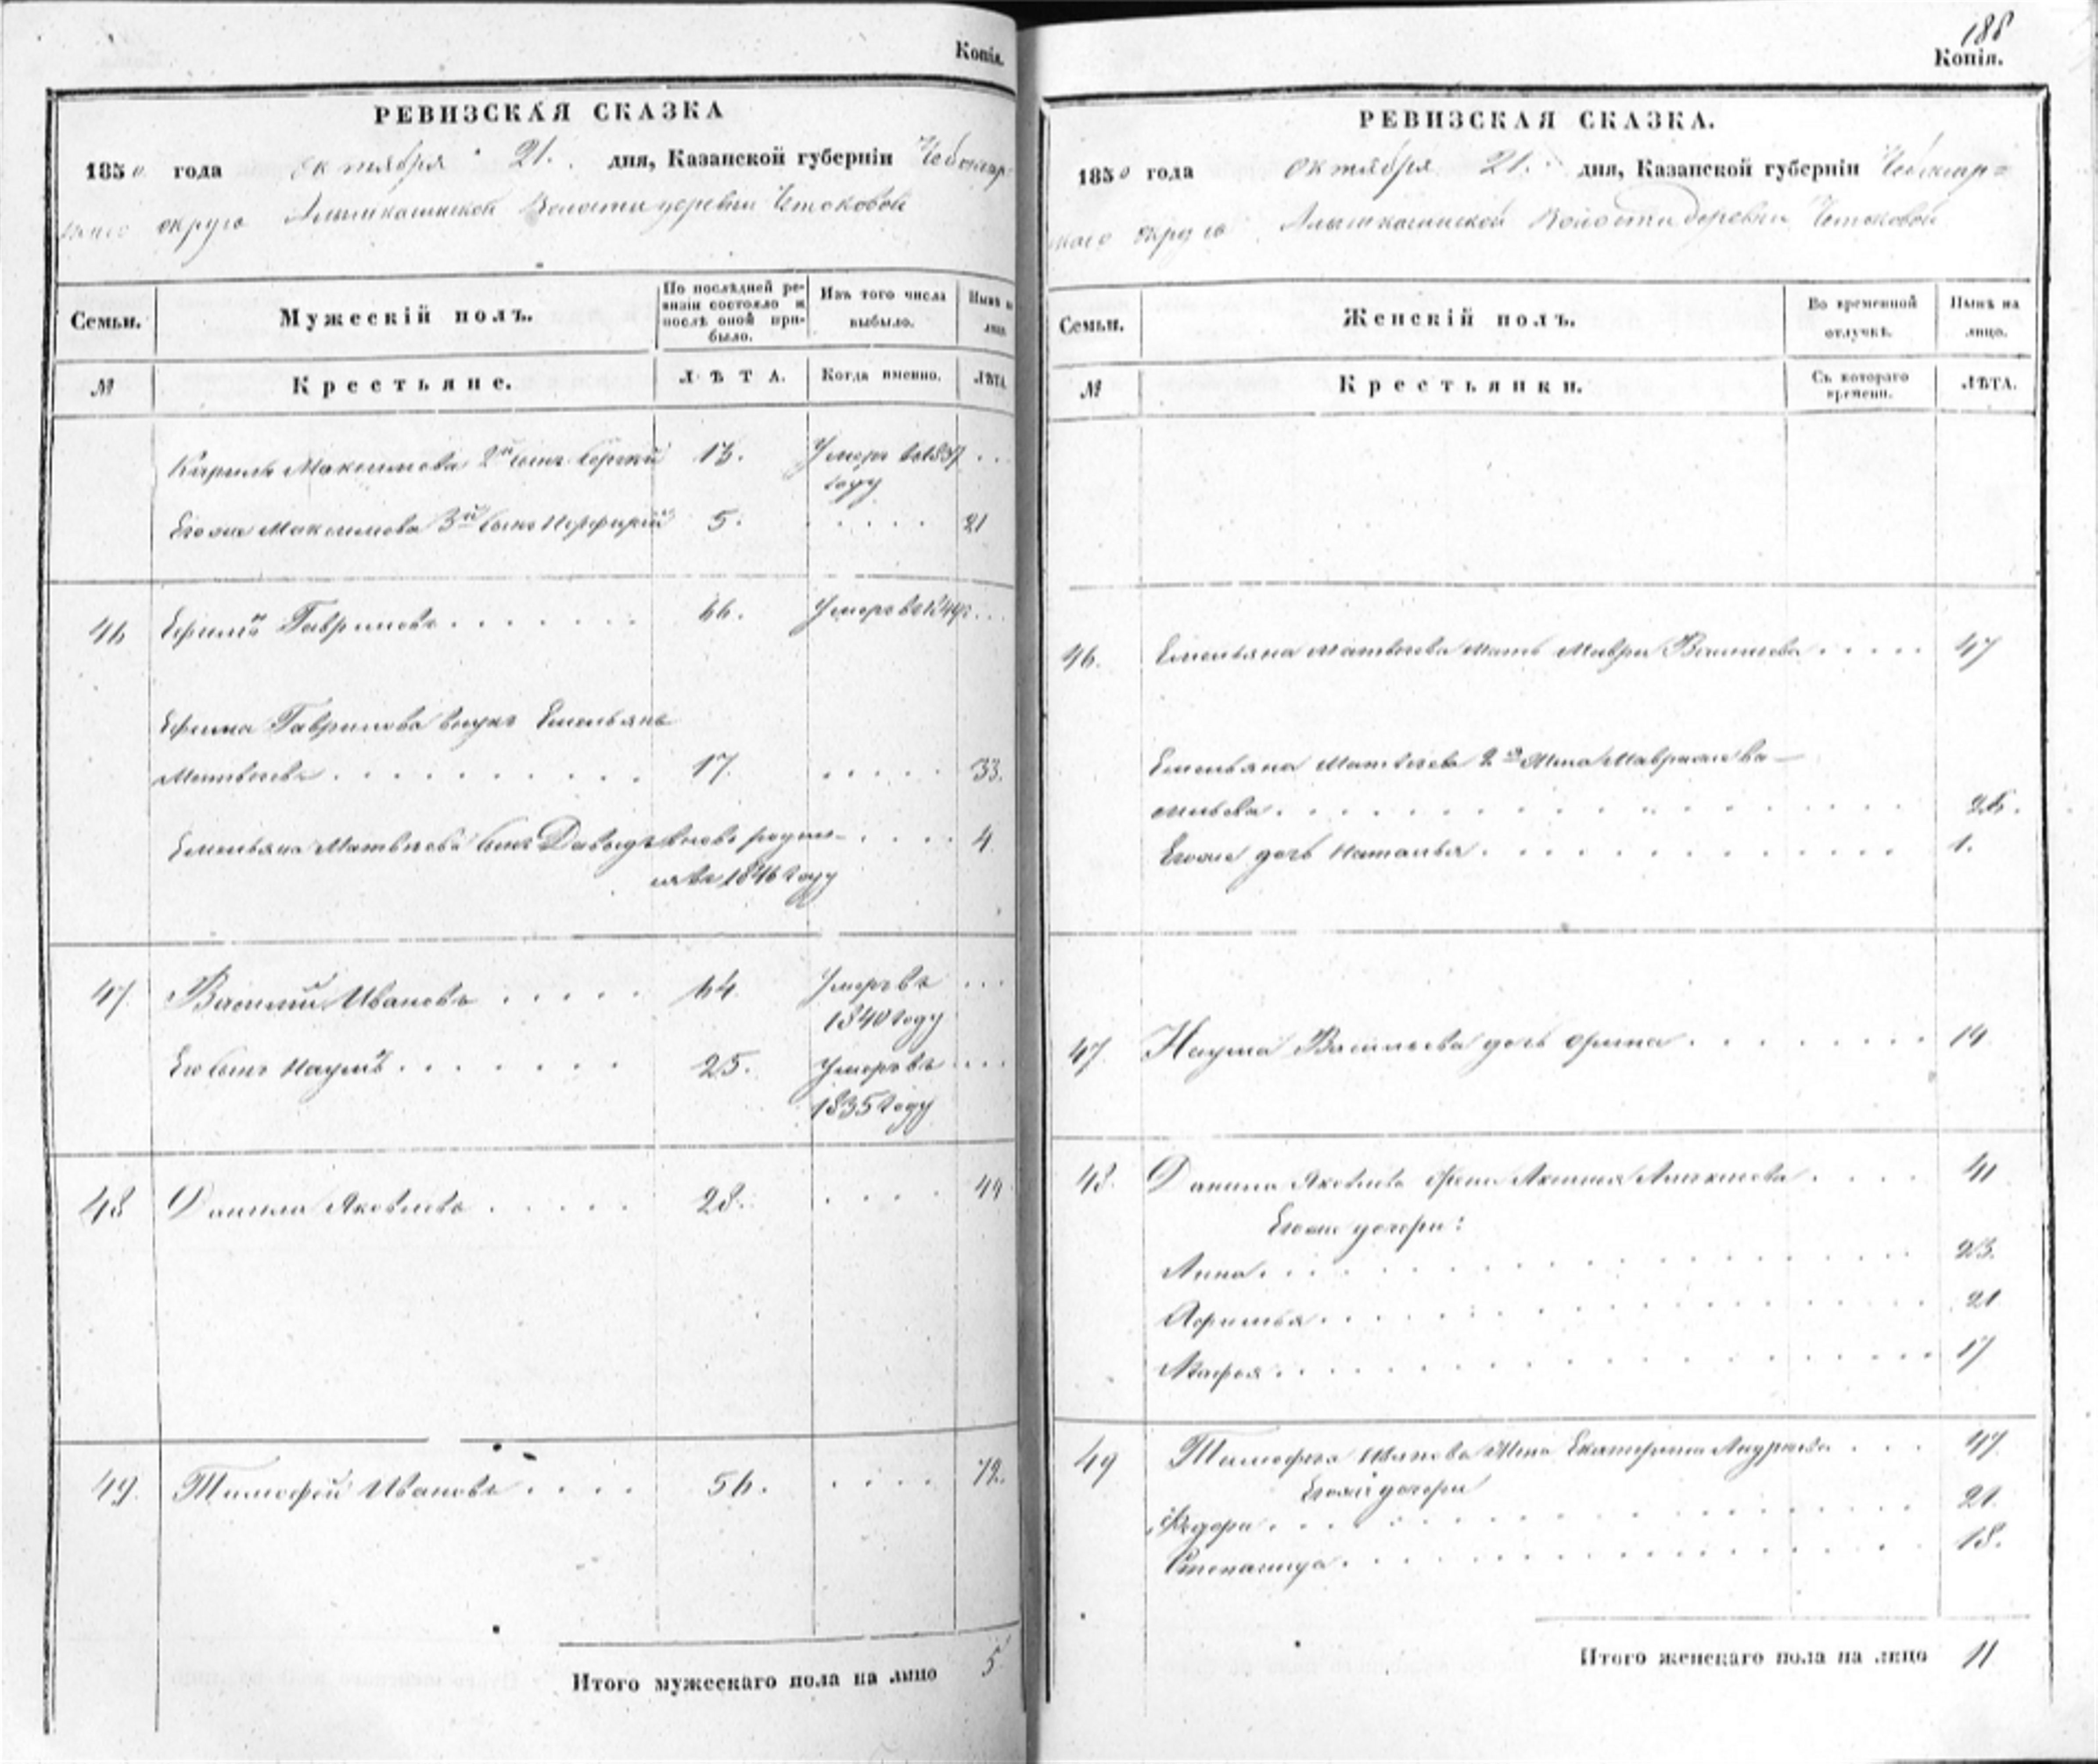 Копія.
РЕВИЗСКАЯ СКАЗКА
1850 года октября 21. дня, Казанской губерніи Чебоксар-
скаго округа Алымкасинской Волости деревни
Семьи. Мужескій полъ. По послѣдней ревизіи состояло и послѣ оной прибыло. Изъ того числа выбыло. Нынѣ на лицо.
№ Крестьяне. ЛѢТА. Когда именно. ЛѢТА.
Кирила Максимова 2й сынъ Сергѣй 13. Умеръ въ 1837 . .
году
Егоже Максимова 3й сынъ Перфирій 5. . . . . . 21
46 Ефимъ Гавриловъ . . . . . . . 66. Умеръ в . . .
Ефима Гаврилова внукъ Емельянъ
Матвѣевъ . . . . . . . . . . 17. . . . . . 33.
Емельяна Матвѣева сынъ Давыдъ вновь родил- . . . . 4
ся въ 1846 году
47. Василій Ивановъ . . . . . 64. Умеръ въ . . .
1840 году
Его сынъ Наумъ . . . . . . . 25. Умеръ въ . . .
1835 году
48 Данила Яковлевъ . . . . . 28. . . . . 44
49. Тимофей Ивановъ . . . . 56. . . . . 72.
Итого мужескаго пола на лицо 5
188
Копія.
РЕВИЗСКАЯ СКАЗКА.
1850 года октября 21. дня, Казанской губерніи Чебоксар-
скаго округа Алымкасинской Волости деревни
Семьи. Женскій полъ. Во временной отлучкѣ. Нынѣ на лицо.
№ Крестьянки. Съ котораго времени. ЛѢТА.
46. Емельяна Матвѣева мать Мавра Васильева . . . . . 47
Емельяна Матвѣева 2я жена Ва-
сильева . . . . . . . . . . . . . . . .
Егоже дочь Наталья . . . . . . . . . . . . 1.
47. Наума Васильева дочь Орина . . . . . . . . 14
48. Данила Яковлева жена Алексѣева . . . . 41
Егоже дочери:
Анна . . . . . . . . . . . . . . . . . 23.
Офимья . . . . . . . . . . . . . . . 21
Марфа . . . . . . . . . . . . . . . . . 17
49 Тимофея Иванова жена Екатерина Андреева . . . 47.
Егоже дочери
Федора . . . . . . . . . . . . . . . . 21.
Степанида . . . . . . . . . . . . . . . 18.
Итого женскаго пола на лицо 11